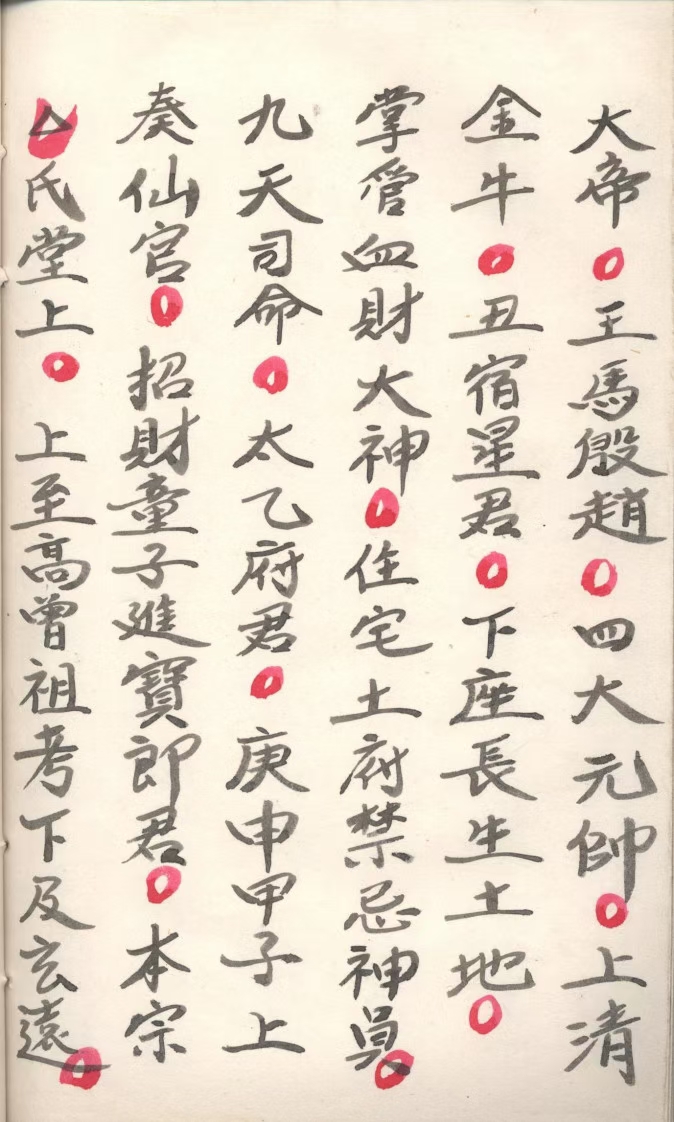 大帝○王馬殷趙○四大元帥○上清
金牛○丑宿星君○下座長生土地○
掌管血財大神○住宅土府禁忌神員○
九天司命○太乙府君○庚申甲子上
奏仙官○招財童子進寶郎君○本宗
厶氏堂上○上至高曾祖考下及玄遠○